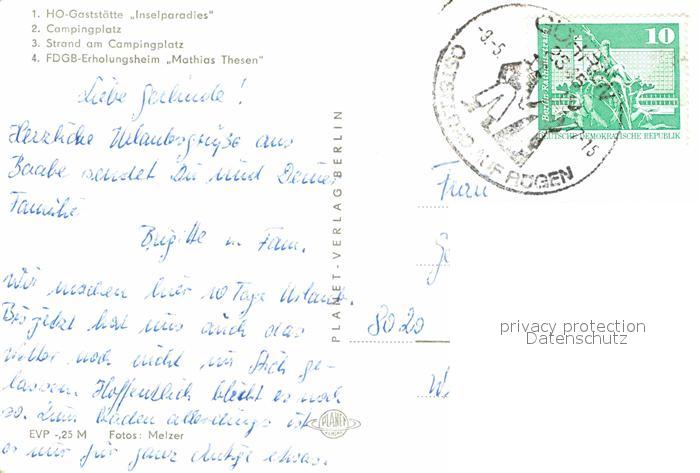 1. HO-Gaststätte „Inselparadies"
2. Campingplatz
3. Strand am Campingplatz
4. FDGB-Erholungsheim „Mathias Thesen"
Liebe Gerlinde!
Herzliche Urlaubsgrüße aus
Baabe sendet Dir und Deiner
Familie
Brigitte u. Fam.
Wir machen hier 10 Tage Urlaub.
Bis jetzt hat uns auch das
Wetter noch nicht im Stich ge-
lassen. Hoffentlich bleibt es noch
so. Zum Baden allerdings ist
es nur für ganz Mutige etwas.
EVP -,25 M Fotos: Melzer
PLANET-VERLAG BERLIN
PLANET
GÖHREN
OSTSEEBAD AUF RÜGEN
10
DEUTSCHE DEMOKRATISCHE REPUBLIK
Frau
8020
privacy protection
Datenschutz